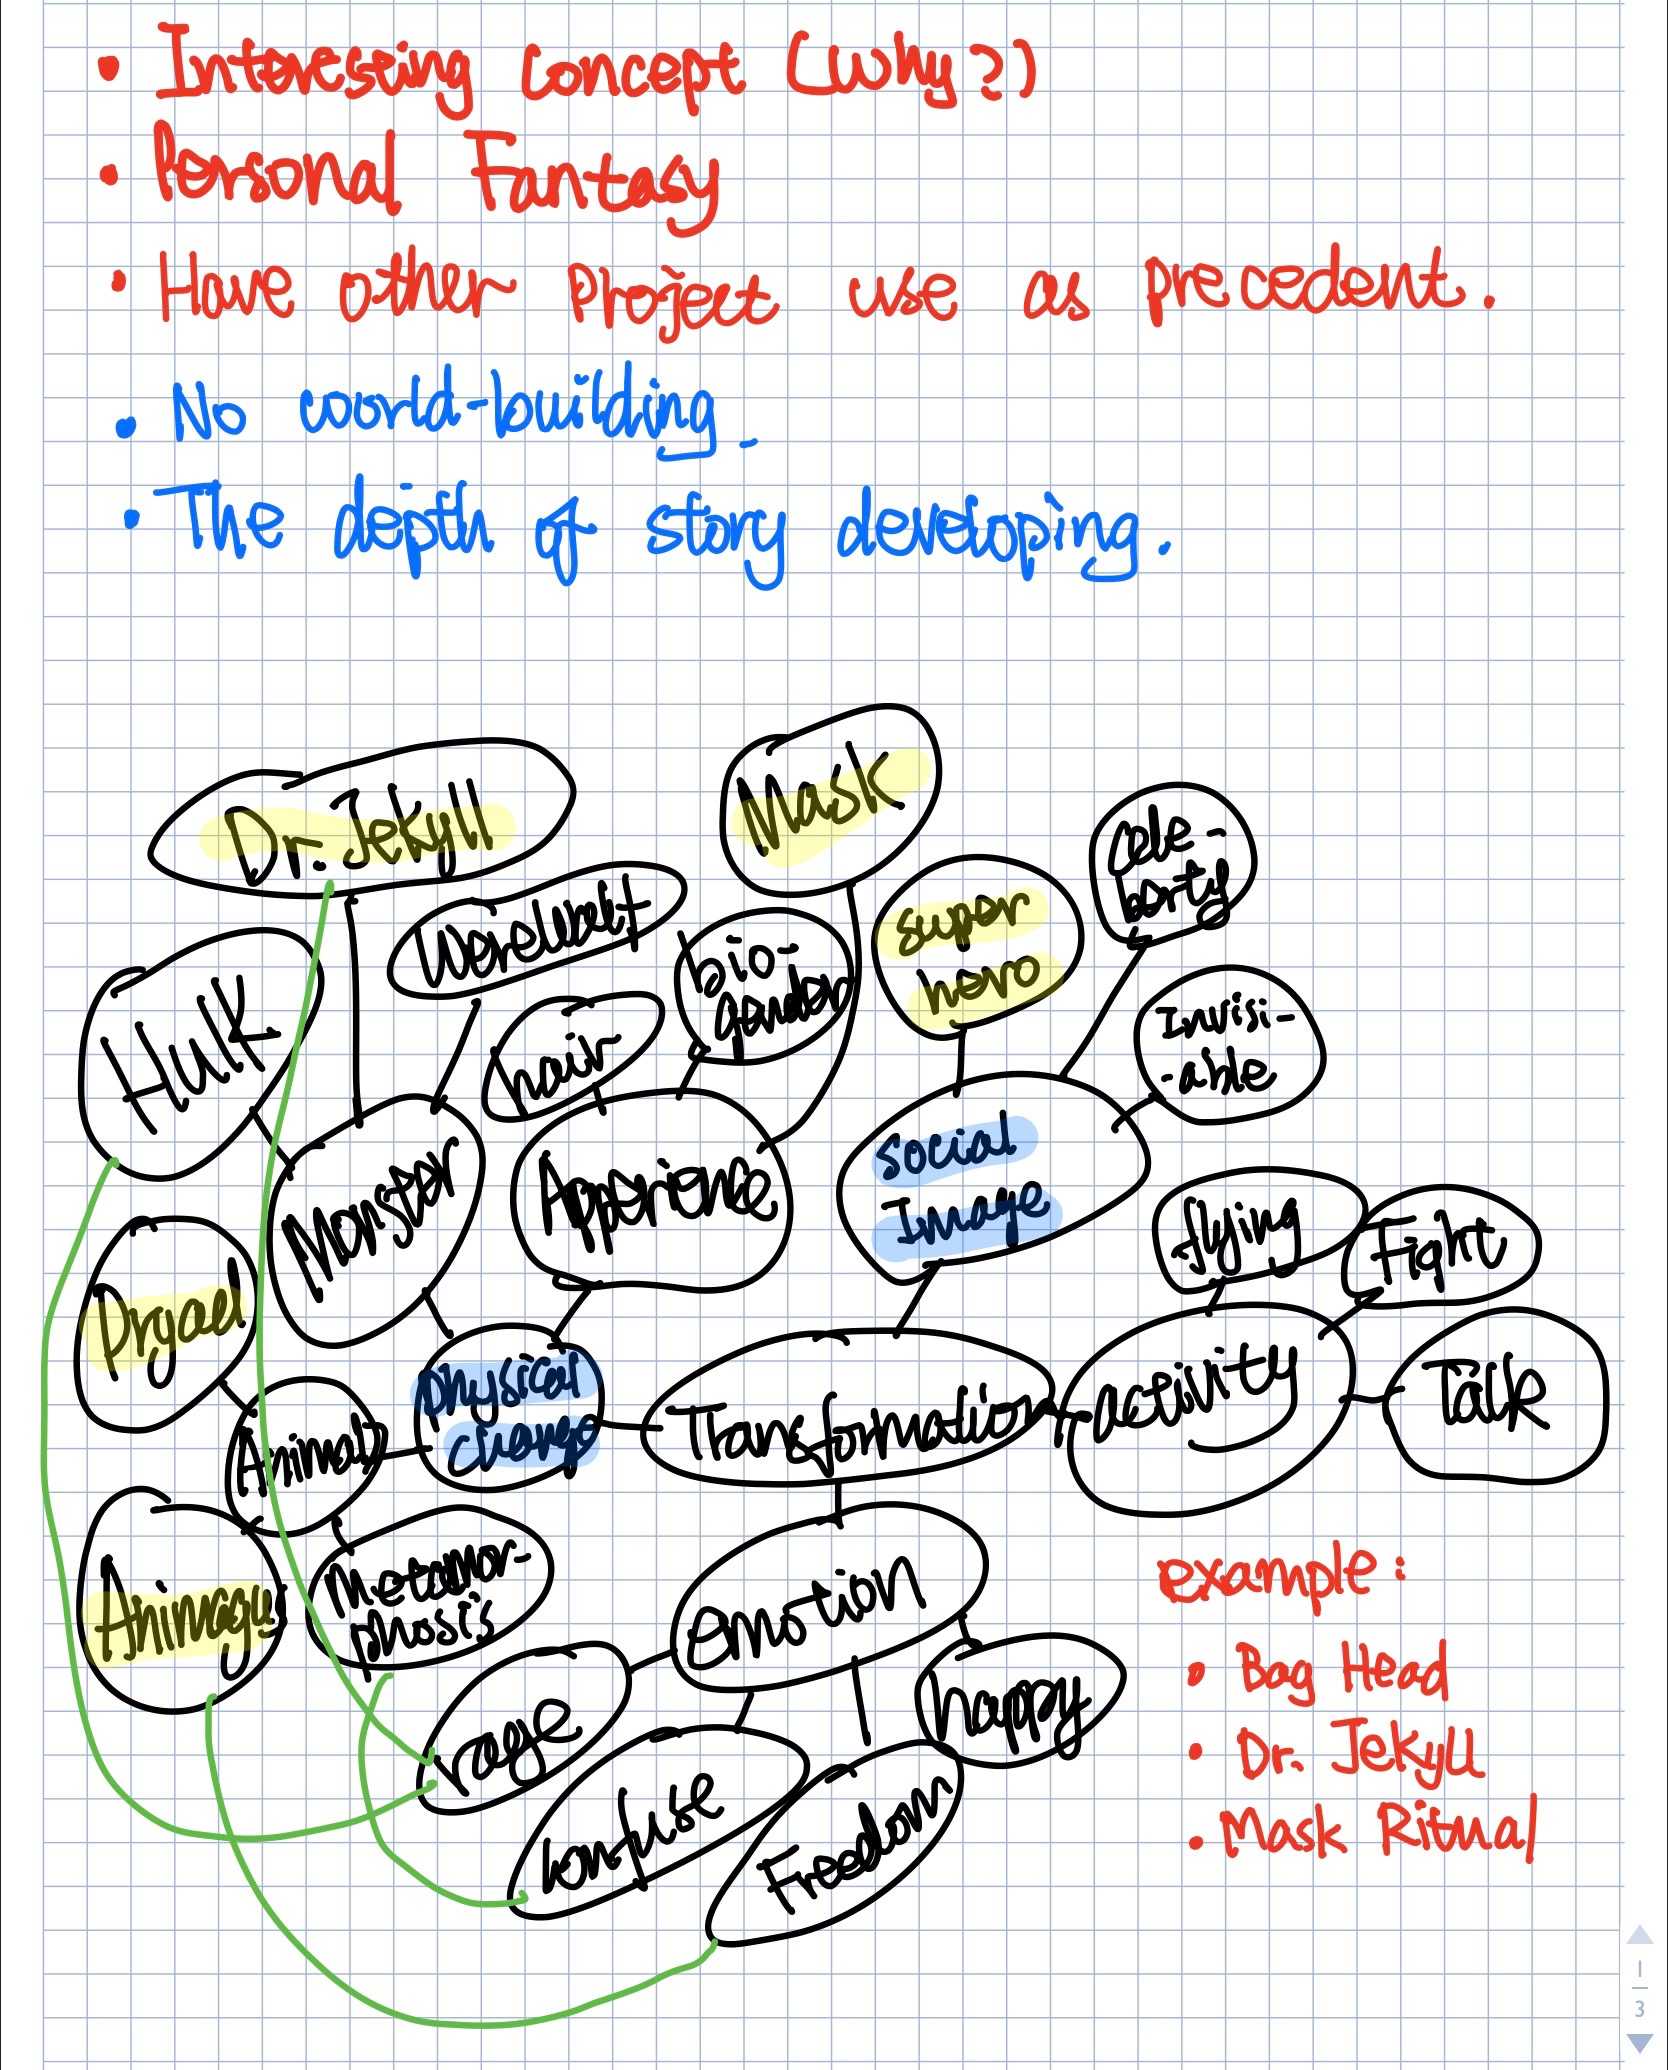 • Interesting concept (Why?)
• Personal Fantasy
• Have other Project use as precedent.
• No world-building.
• The depth of story developing.
Dr. Jekyll
Mask
Cele-
berty
super
hero
bio-
gender
Hulk
hair
Invisi-
-able
Monster
Apperience
social
Image
flying
Fight
physical
change
Transformation
activity
Talk
Animal
Animagus
Metamor-
phosis
emotion
example:
rage
happy
• Bag Head
confuse
• Dr. Jekyll
Freedom
• Mask Ritual
1
3